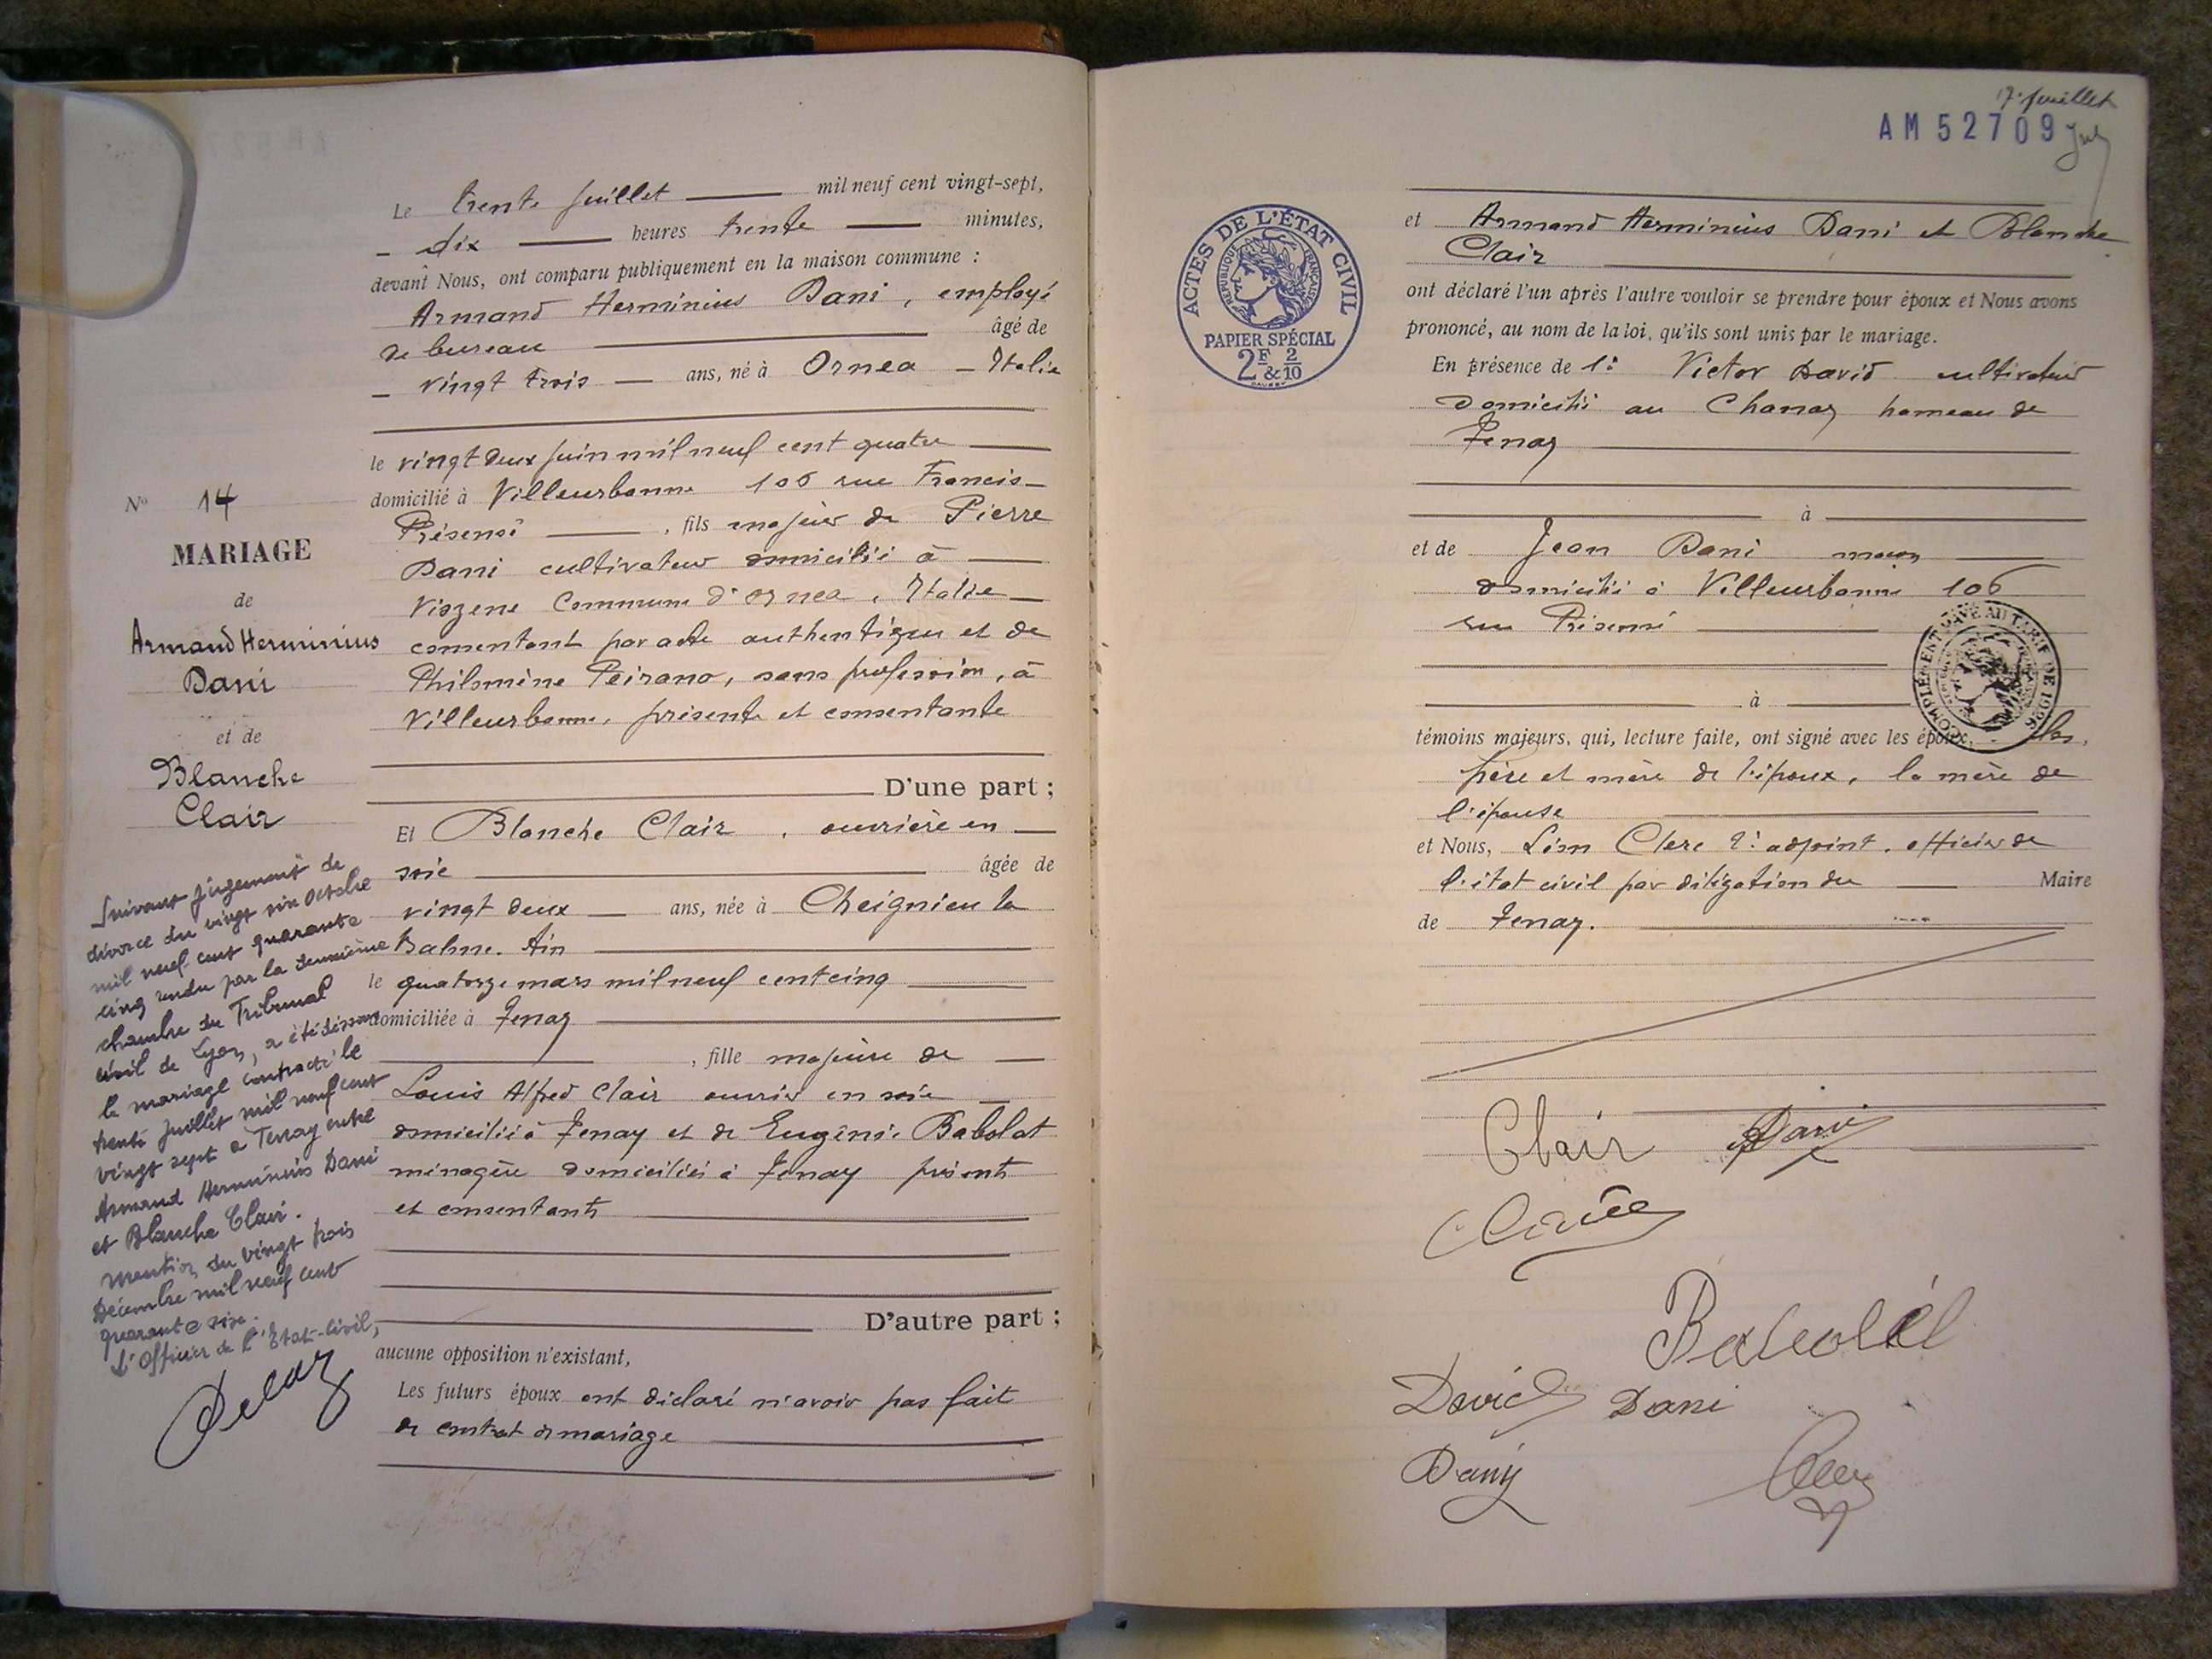 Le trente juillet mil neuf cent vingt-sept,
dix heures trente minutes,
devant Nous, ont comparu publiquement en la maison commune :
Armand Herminius Dani, employé
de bureau âgé de
vingt trois ans, né à Ornea - Italie
le vingt deux juin mil neuf cent quatre
domicilié à Villeurbanne 106 rue Francis-
Présensé , fils majeur de Pierre
Dani cultivateur domicilié à
Viozene Commune d'Ornea, Italie
consentant par acte authentique et de
Philomène Peirano, sans profession, à
Villeurbanne, présente et consentante
D'une part ;
Et Blanche Clair, ouvrière en
soie âgée de
vingt deux ans, née à Cheignieu la
Balme. Ain
le quatorze mars mil neuf cent cinq
domiciliée à Tenay
, fille majeure de
Louis Alfred Clair ouvrier en soie
domicilié à Tenay et de Eugénie Babolat
ménagère domiciliée à Tenay présents
et consentants
D'autre part ;
aucune opposition n'existant,
Les futurs époux ont déclaré n'avoir pas fait
de contrat de mariage
No 14
MARIAGE
de
Armand Herminius
Dani
et de
Blanche
Clair
Suivant jugement de
divorce du vingt six Octobre
mil neuf cent quarante
cinq rendu par la deuxième
chambre du Tribunal
civil de Lyon, a été dissous
le mariage contracté le
trente juillet mil neuf cent
vingt sept à Tenay entre
Armand Herminius Dani
et Blanche Clair.
Mention du vingt trois
Décembre mil neuf cent
quarante six.
L'Officier de l'Etat-Civil,
17e feuillet
AM 52709
ACTES DE L'ÉTAT CIVIL
RÉPUBLIQUE FRANÇAISE
PAPIER SPÉCIAL
2F & 2/10
et Armand Herminius Dani et Blanche
Clair
ont déclaré l'un après l'autre vouloir se prendre pour époux et Nous avons
prononcé, au nom de la loi, qu'ils sont unis par le mariage.
En présence de 1° Victor David cultivateur
domicilié au Chanay hameau de
Tenay
à
et de Jean Dani maçon
domicilié à Villeurbanne 106
rue Présensé
à
COMPLÉMENT PAYÉ AU TARIF DE 1926
témoins majeurs, qui, lecture faite, ont signé avec les époux, les,
père et mère de l'époux, la mère de
l'épouse
et Nous, Léon Clerc 2e adjoint, officier de
l'état civil par délégation du Maire
de Tenay.
Clair Dani
Babolat
David Dani
Dany